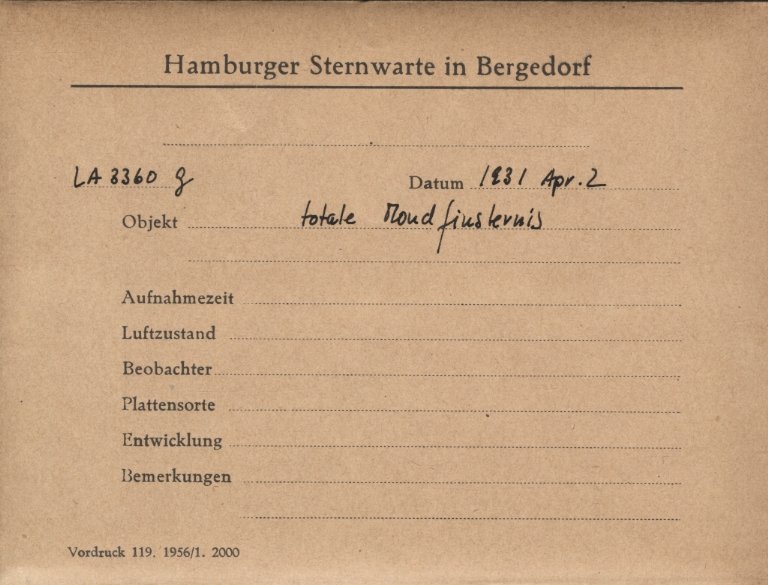 Hamburger Sternwarte in Bergedorf
LA 3360 g Datum 1931 Apr. 2
Objekt totale Mondfinsternis
Aufnahmezeit
Luftzustand
Beobachter
Plattensorte
Entwicklung
Bemerkungen
Vordruck 119. 1956/1. 2000